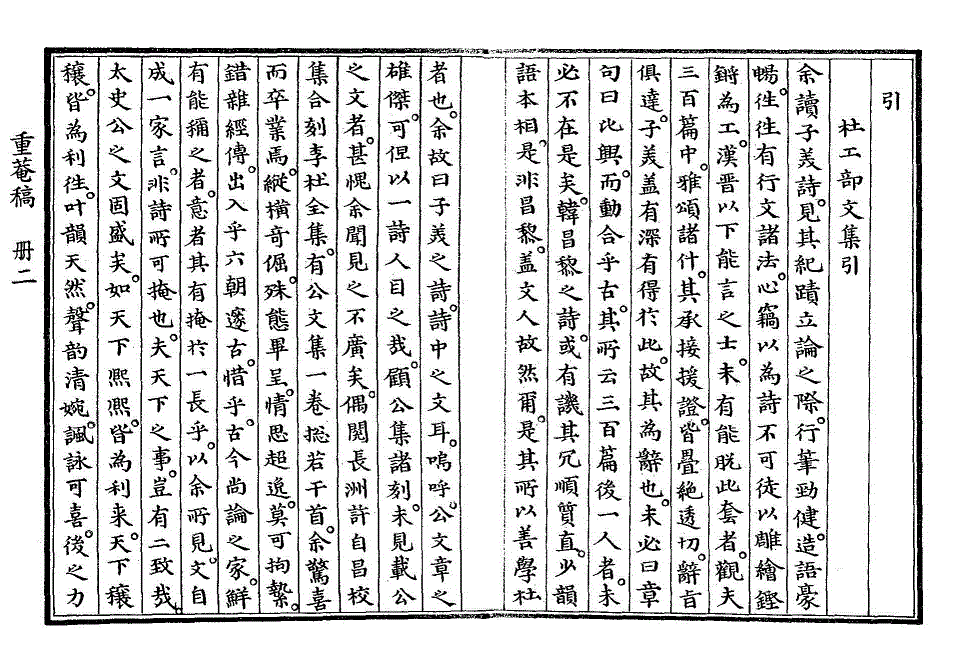 引
杜工部文集引
余讀子美詩。見其紀蹟立論之際。行筆勁健。造語豪
暢。往往有行文諸法。心竊以為詩不可徒以雕繪鏗
鏘為工。漢晋以下能言之士。未有能脫此套者。觀夫
三百篇中。雅頌諸什。其承接援證。皆疊絶透切。辭旨
俱達。子美盖有深有得扵此。故其為辭也。未必曰章
句曰比興。而動合乎古。其所云三百篇後一人者。未
必不在是矣。韓昌黎之詩。或有譏其冗順質直。少韻
語本相。是非昌黎。盖文人故然爾。是其所以善學杜
者也。余故曰子美之詩。詩中之文耳。嗚呼。公文章之
雄傑。可但以一詩人目之哉。顧公集諸刻。未見載公
之文者。甚愧余聞見之不廣矣。偶閱長洲許自昌校
集合刻李杜全集。有公文集一卷捴若干首。余驚喜
而卒業焉。縱橫奇倔。殊態畢呈。情思超逸。莫可拘縶。
錯雜經傳。出入乎六朝邃古。惜乎。古今尚論之家。鮮
有能稱之者。意者其有掩扵一長乎。以余所見。文自
成一家言。非詩所可掩也。夫天下之事。豈有二致哉
太史公之文固盛矣。如天下熙熙。皆為利来。天下穰
穰。皆為利往。叶韻天然。聲韵清婉。諷詠可喜。後之力
重菴稿 册二